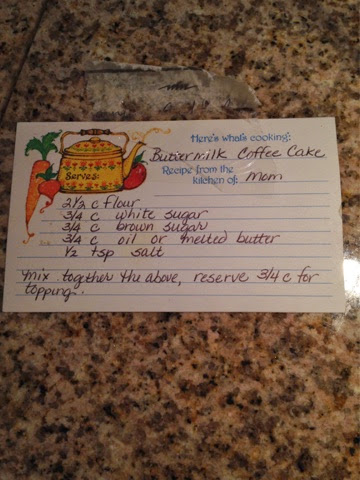 Here's what's cooking:
Buttermilk Coffee Cake
Recipe from the
kitchen of: Mom
Serves:
2 1/2 c flour
3/4 c white sugar
3/4 c brown sugar
3/4 c oil or melted butter
1/2 tsp salt
Mix together the above, reserve 3/4 c for
topping.